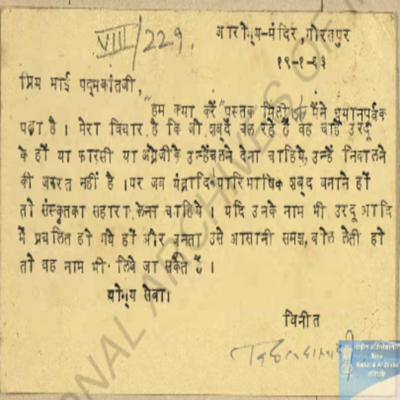 VIII/229
आरोग्य-मंदिर, गोरखपुर
१९-१-६३
प्रिय भाई पद्मकांतजी,
"हम क्या करें" पुस्तक मिली मैंने ध्यानपूर्वक
पढ़ा है । मेरा विचार है कि जो शब्द चल रहे हैं वह चाहें उरदू
के हों या फारसी या अंग्रेजी के उन्हें चलने देना चाहिये, उन्हें निकालने
की जरूरत नहीं है । पर जब यंत्रादि पारिभाषिक शब्द बनाने हों
तो संस्कृत का सहारा लेना चाहिये । यदि उनके नाम भी उरदू आदि
में प्रचलित हो गये हों और जनता उसे आसानी समझ, बोल लेती हो
तो वह नाम भी लिये जा सकते हैं ।
योग्य सेवा।
विनीत
NATIONAL ARCHIVES OF
राष्ट्रीय अभिलेखागार
National Archives